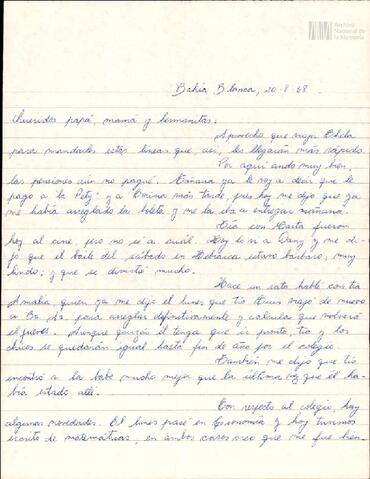 Archivo
Nacional de
la Memoria
Bahía Blanca, 20-8-68.-
Queridos papá, mamá y hermanitas:
Aprovecho que viaja Chela
para mandarles estas líneas que, así, les llegarán más rápido.
Por aquí ando muy bien,
las pensiones aún no pagué. Mañana ya le voy a decir que le
pago a la Pety; y a Omina más tarde, pues hoy me dijo que ya
me había arreglado la boleta y me la iba a entregar mañana.
Tía con Marta fueron
hoy al cine, pero no sé a cuál. Hoy lo vi a Dany y me di-
jo que el baile del sábado en Hebraica estuvo bárbaro, muy
lindo; y que se divirtió mucho.
Hace un rato hablé con tía
Amalia quien ya me dijo el lunes que tío viajó de nuevo
a Bs As para arreglar definitivamente y calcula que volverá
el jueves. Aunque quizás él tenga que ir pronto, tía y los
chicos se quedarán igual hasta fin de año por el colegio.
También me dijo que tío
encontró a la bobe mucho mejor que la última vez que él ha-
bía estado allí.
Con respecto al colegio, hay
algunas novedades. El lunes pasé en Economía y hoy tuvimos
escrito de matemáticas, en ambos casos creo que me fue bien.